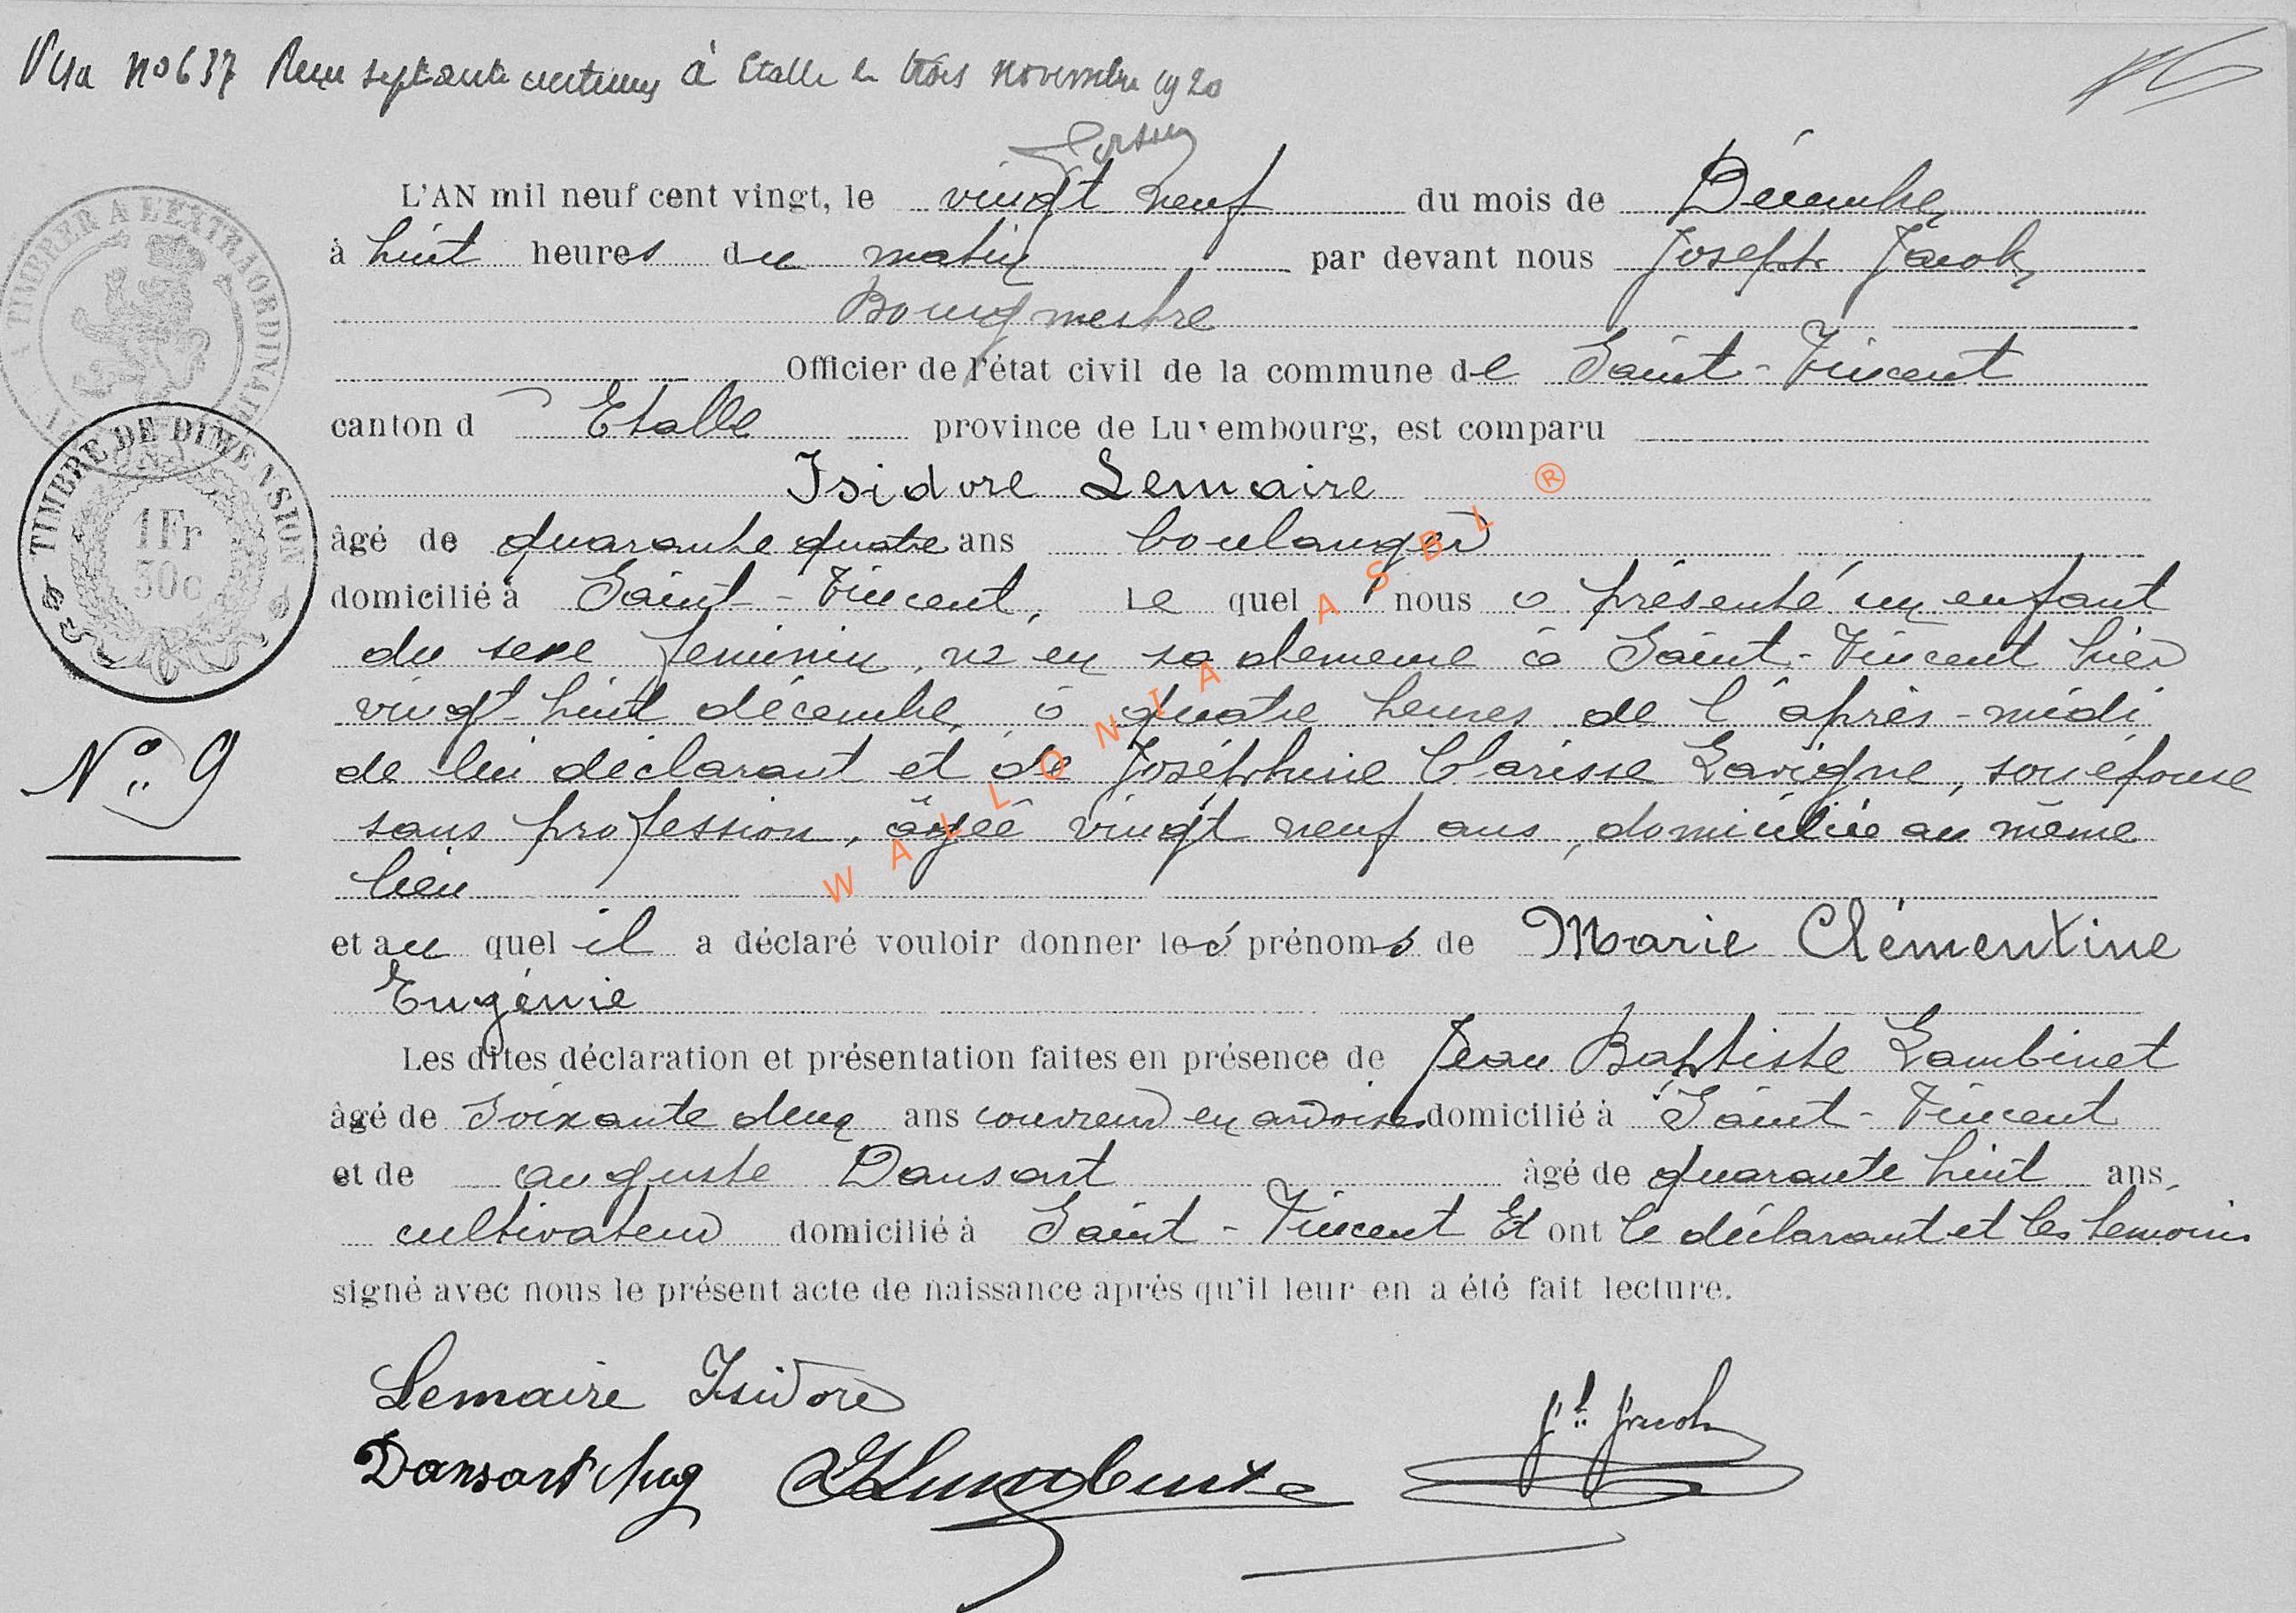 Visa no 637 Reçu septante centimes à Etalle le trois novembre 1920
L'AN mil neuf cent vingt, le vingt neuf du mois de Décembre,
à huit heures du matin par devant nous Joseph Jacob,
Bourgmestre
Officier de l'état civil de la commune de Saint-Vincent
canton d' Etalle province de Luxembourg, est comparu
Isidore Lemaire
âgé de quarante quatre ans boulanger
domicilié à Saint-Vincent, le quel nous a présenté un enfant
du sexe feminin, né en sa demeure à Saint-Vincent hier
vingt-huit décembre, à quatre heures de l'après-midi
de lui déclarant et de Joséphine Clarisse Lavigne, son épouse
sans profession, âgée vingt neuf ans, domiciliée au même
lieu
et au quel il a déclaré vouloir donner les prénoms de Marie Clémentine
Eugénie
Les dites déclaration et présentation faites en présence de Jean Baptiste Lambinet
âgé de Soixante deux ans couvreur en ardoises domicilié à Saint-Vincent
et de Auguste Dansart âgé de quarante huit ans,
cultivateur domicilié à Saint-Vincent Et ont le déclarant et les témoins
signé avec nous le présent acte de naissance après qu'il leur en a été fait lecture.
Lemaire Isidore
Jh Jacob
Dansart Aug
A TIMBRER A L'EXTRAORDINAIRE
TIMBRE DE DIMENSION
1Fr
50c
No 9
WALLONIA ASBL ®